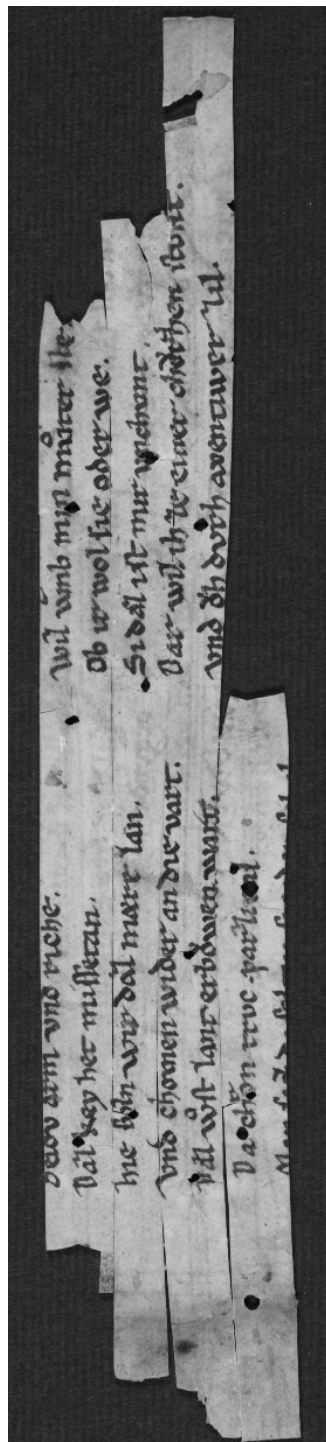 arm vnd riche.
Daz key het missetan.
hie svln wir daz mære lan.
vnd chomen wider an die vart.
Daz wͦst lant erbowen wart.
Da chron trvc parzifal.
wil vmb min mͦter ste.
Ob ir wol sie oder we.
Si daz ist mir vnchvnt.
Dar wil ih ze einer chvrcen stvnt.
vnd ovh dvrh aventiwer zil.